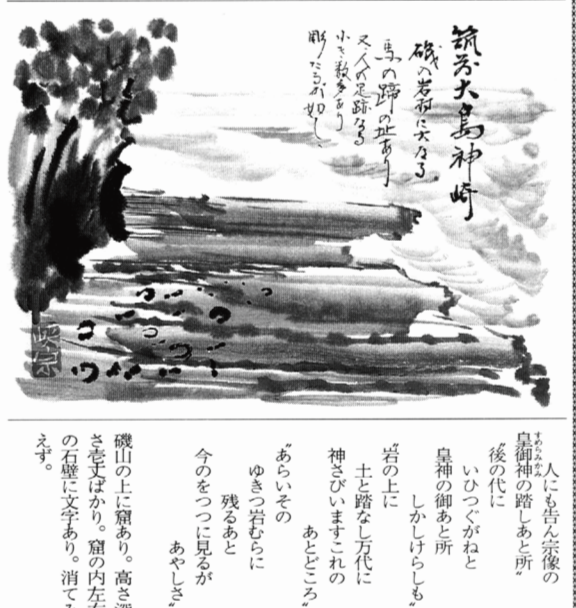 筑前大島神崎
磯の岩村に大なる
馬の蹄の址あり
又、人の足跡なる
小き数多あり
彫たるが如し、
人にも告ん宗像の
皇御神の踏しあと所〟
すめらみかみ
〝後の代に
いひつぐがねと
しかしけらしも〟
皇神の御あと所
〝岩の上に
土と踏なし万代に
神さびいますこれの
あとどころ〟
〝あらいその
ゆきつ岩むらに
残るあと
今のをつつに見るが
あやしさ〟
磯山の上に窟あり。高さ深
さ壱丈ばかり。窟の内左右
の石壁に文字あり。消てみ
えず。